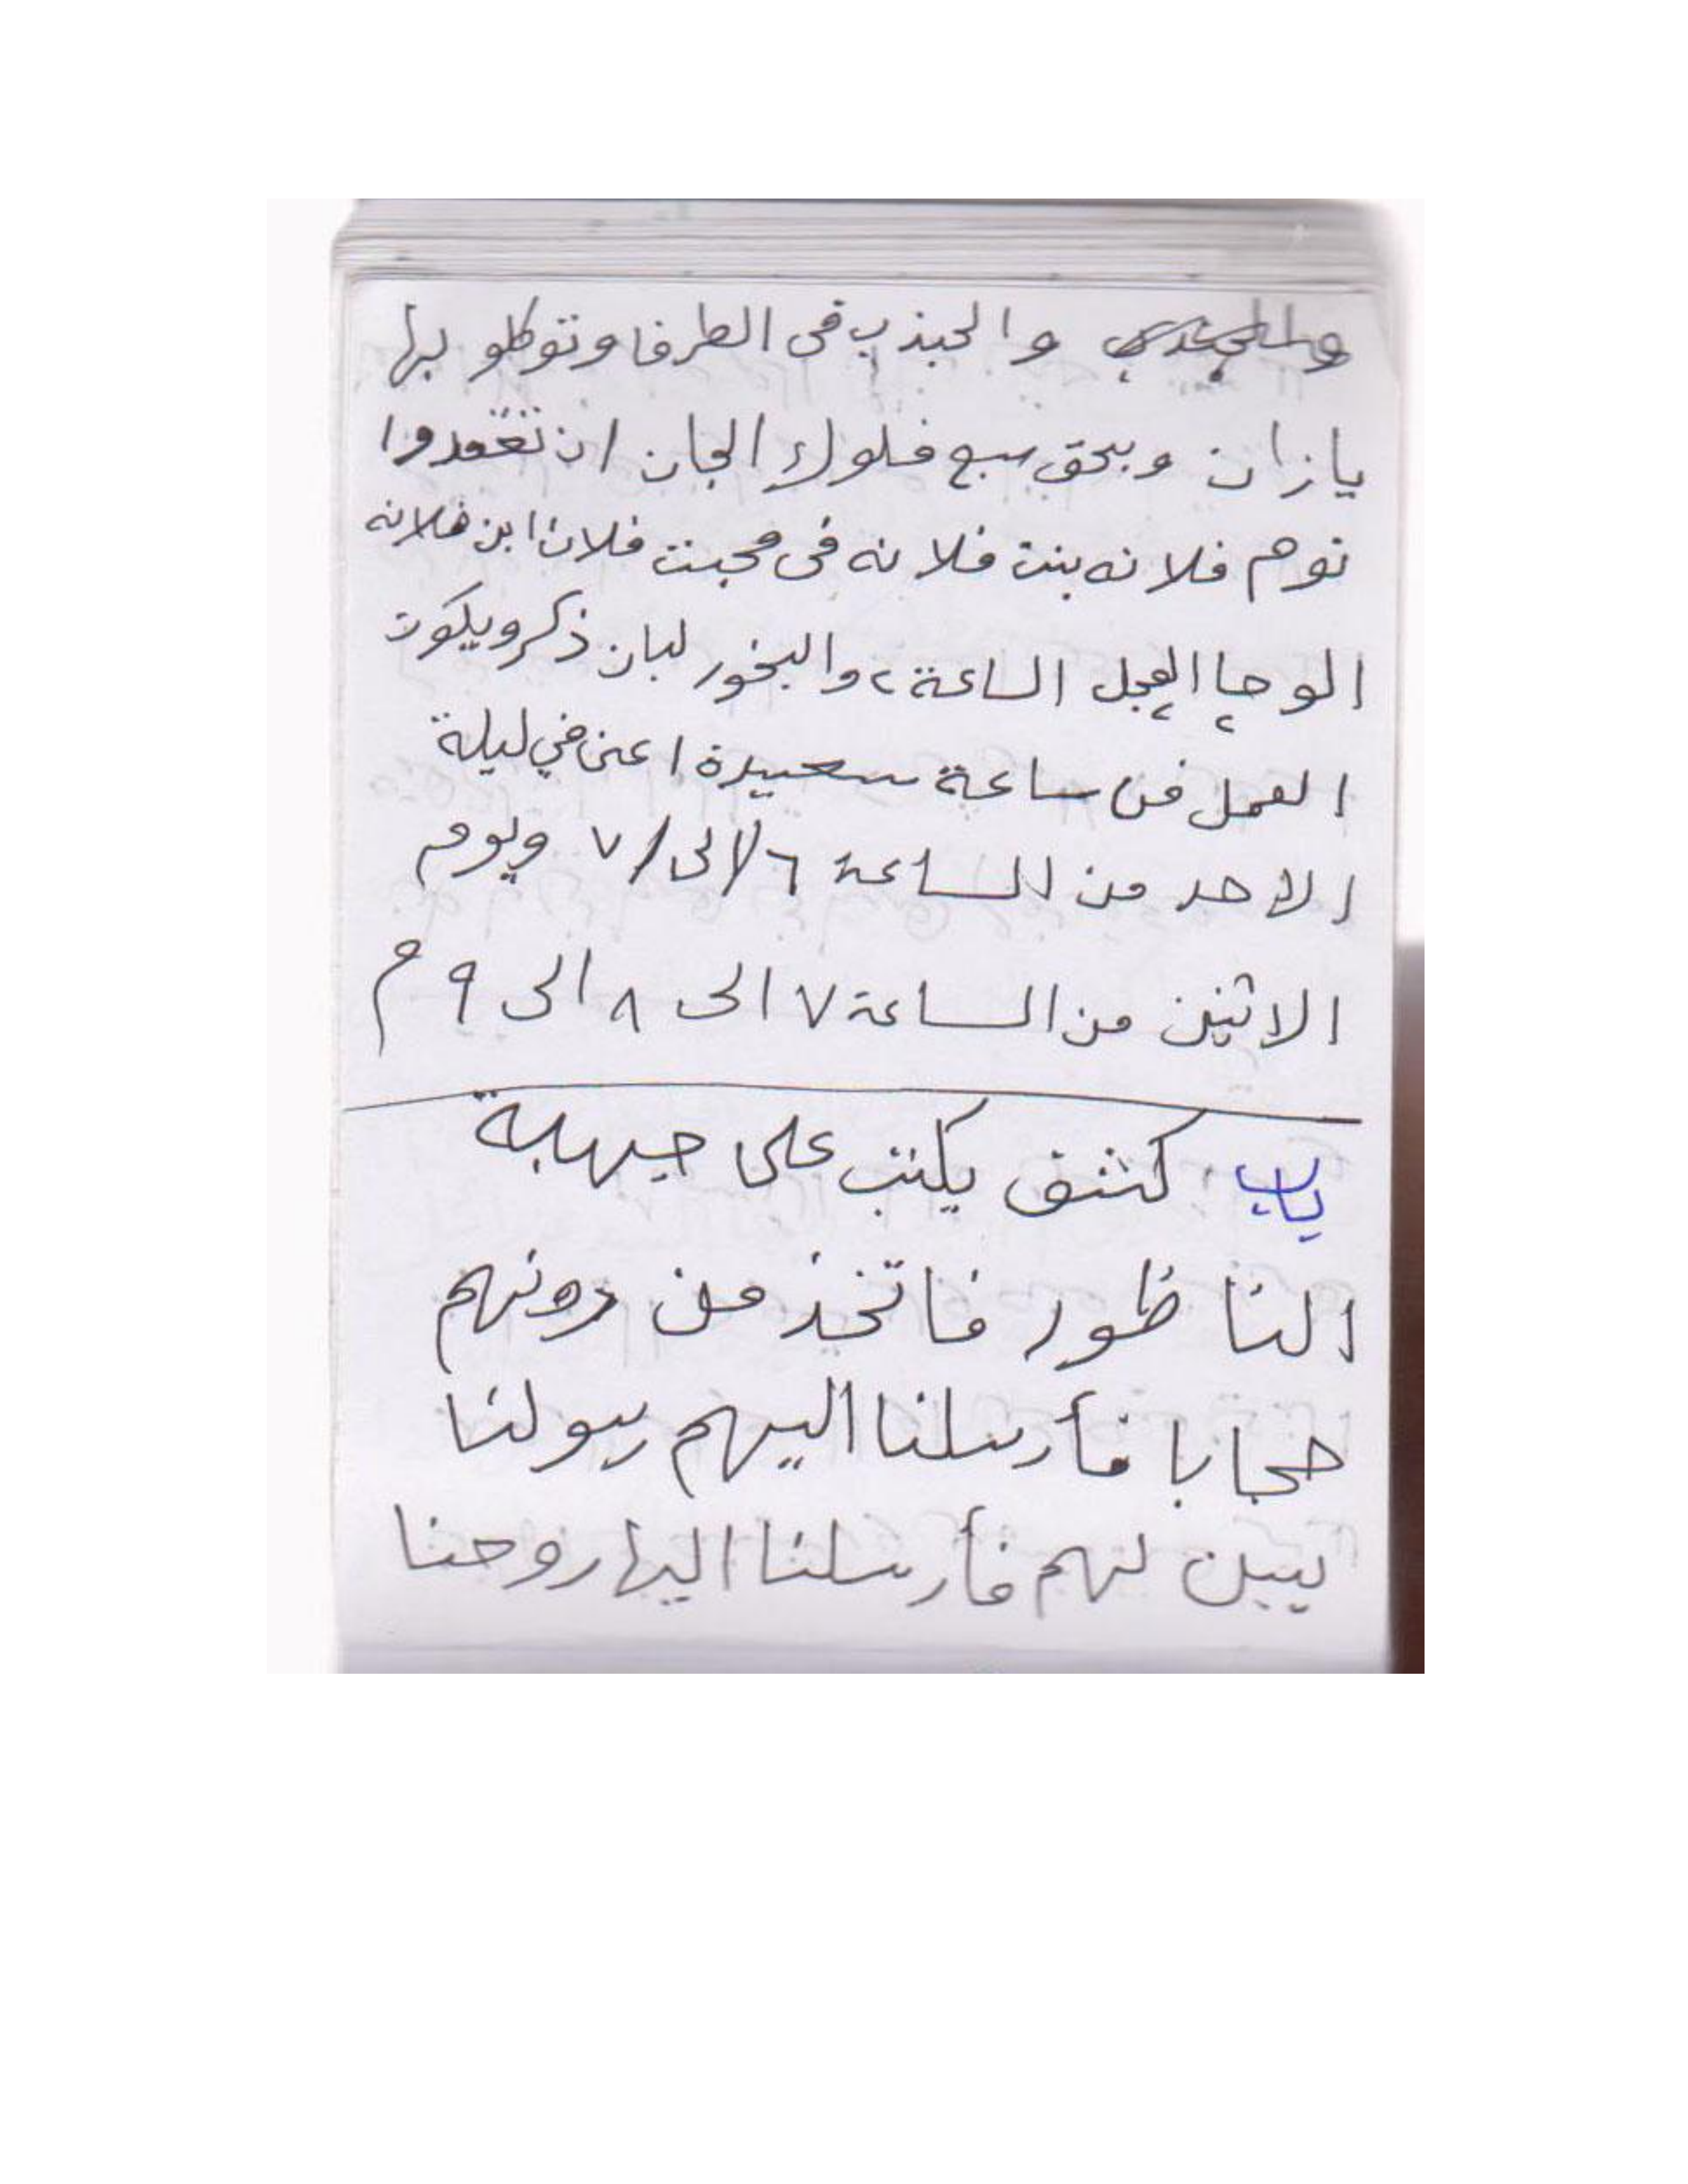 والجذب فى الطرفا وتوكلو بها
يازان وبحق سبع ملوك الجان ان تعقدوا
نوم فلانه بنت فلانه فى محبت فلان ابن فلانه
الوحا العجل الساعة ٢ والبخور لبان ذكر ويكون
العمل من ساعة سعيدة اعنى في ليلة
الاحد من الساعة ٦ الى ٧ ويوم
الاثنين من الساعة ٧ الى ٨ الى ٩ م
باب كشف يكتب على جبهة
الناظور فاتخذ من دونهم
حجابا فأرسلنا اليهم رسولنا
يبين لهم فأرسلنا اليها روحنا